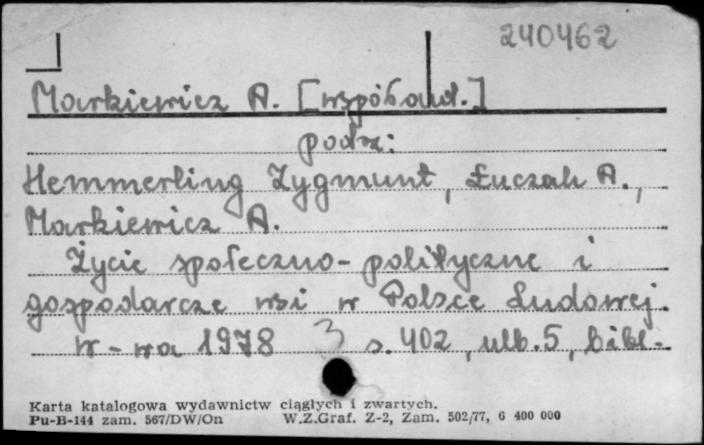 240462
Markiewicz A. [współaut.]
podz:
Hemmerling Zygmunt, Łuczak A.,
Markiewicz A.
Życie społeczno-polityczne i
gospodarcze wsi w Polsce Ludowej.
W-wa 1978 3 s. 402, ulb. 5, bibl-
Karta katalogowa wydawnictw ciągłych i zwartych.
Pu-B-144 zam. 567/DW/On W.Z.Graf. Z-2, Zam. 502/77, 6 400 000